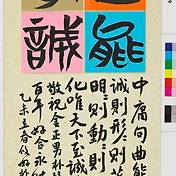 能
誠
中庸句曲能
誠則形則
明則動則
化唯天下至誠
敬祝金正男朴
百年好合永結
乙未立春